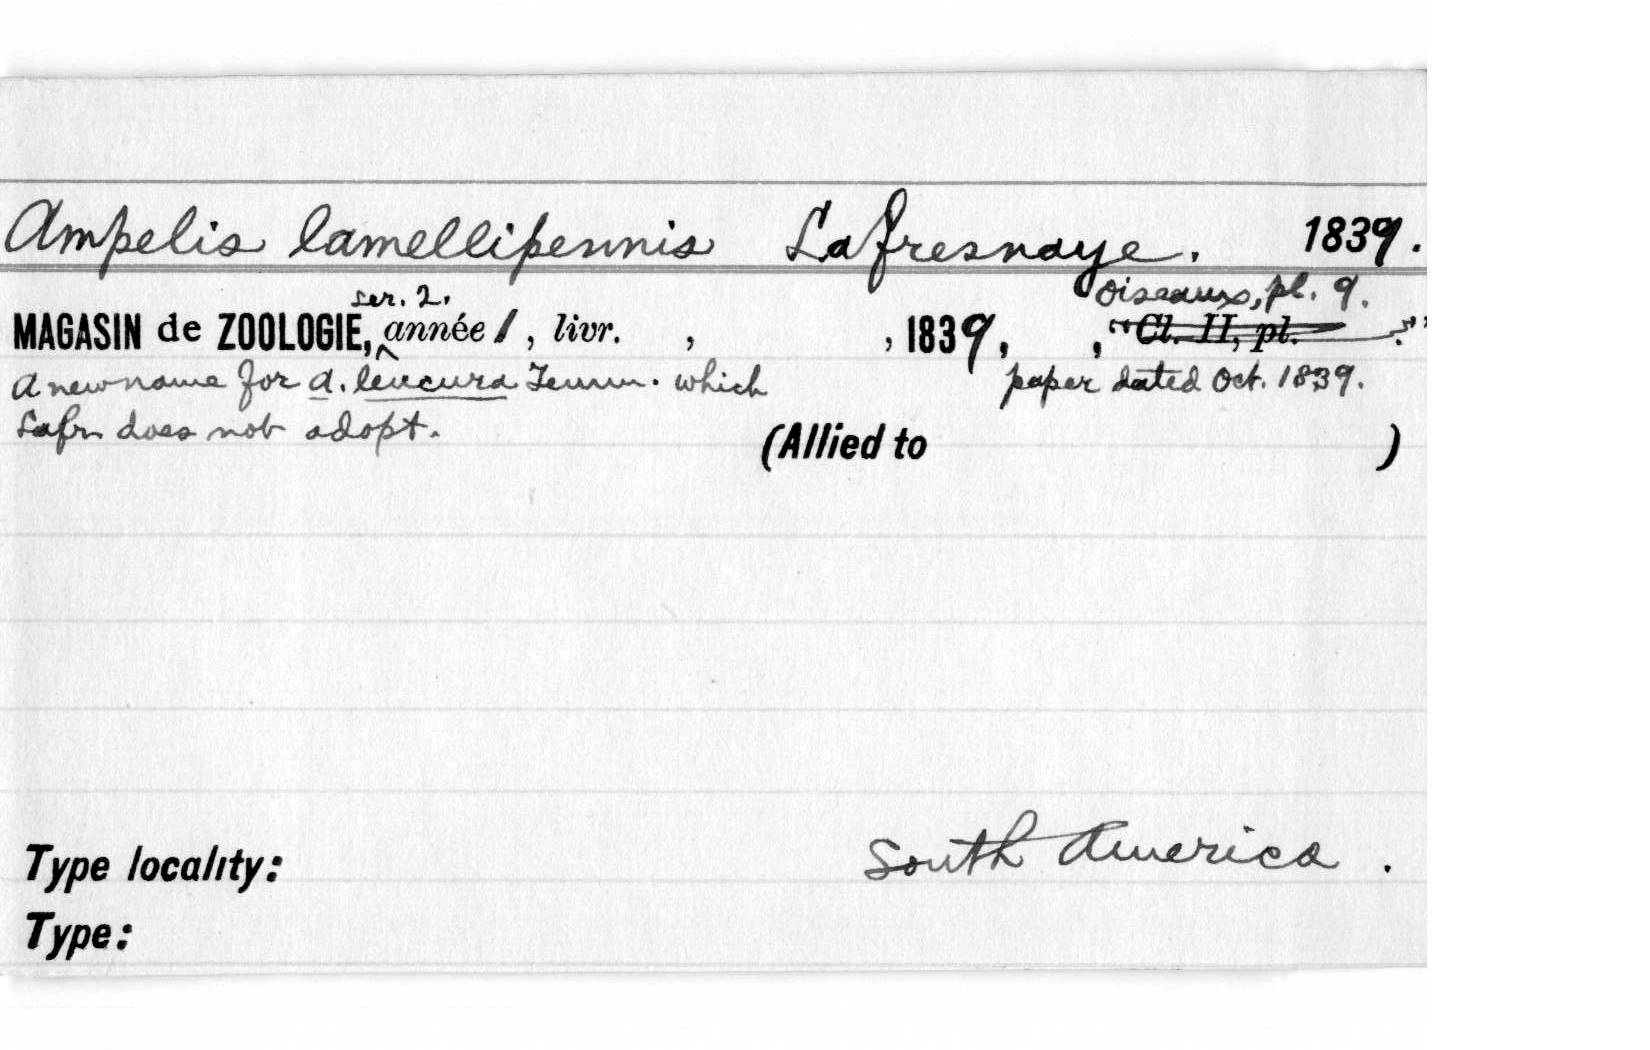 Ampelis lamellipennis Lafresnaye. 1839.
ser. 2. Oiseaux, pl. 9.
MAGASIN de ZOOLOGIE, année 1, livr. , , 1839, , "Cl. II, pl. ."
A new name for A. leucura Temm. which paper dated Oct. 1839.
Lafr. does not adopt.
(Allied to )
South America.
Type locality:
Type: